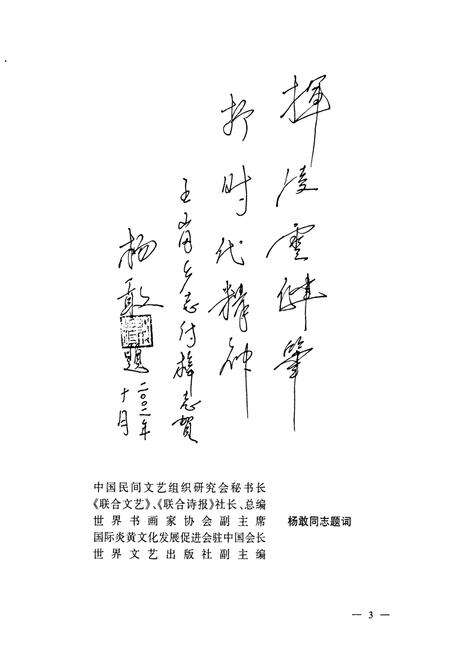 揮凌雲健筆
抒时代精神
王岗乡志付梓志賀
杨敢
题
十月
中国民间文艺组织研究会秘书长
《联合文艺》、《联合诗报》社长、总编
世界书画家协会副主席
国际炎黄文化发展促进会驻中国会长
世界文艺出版社副主编
杨敢同志题词
— 3 —